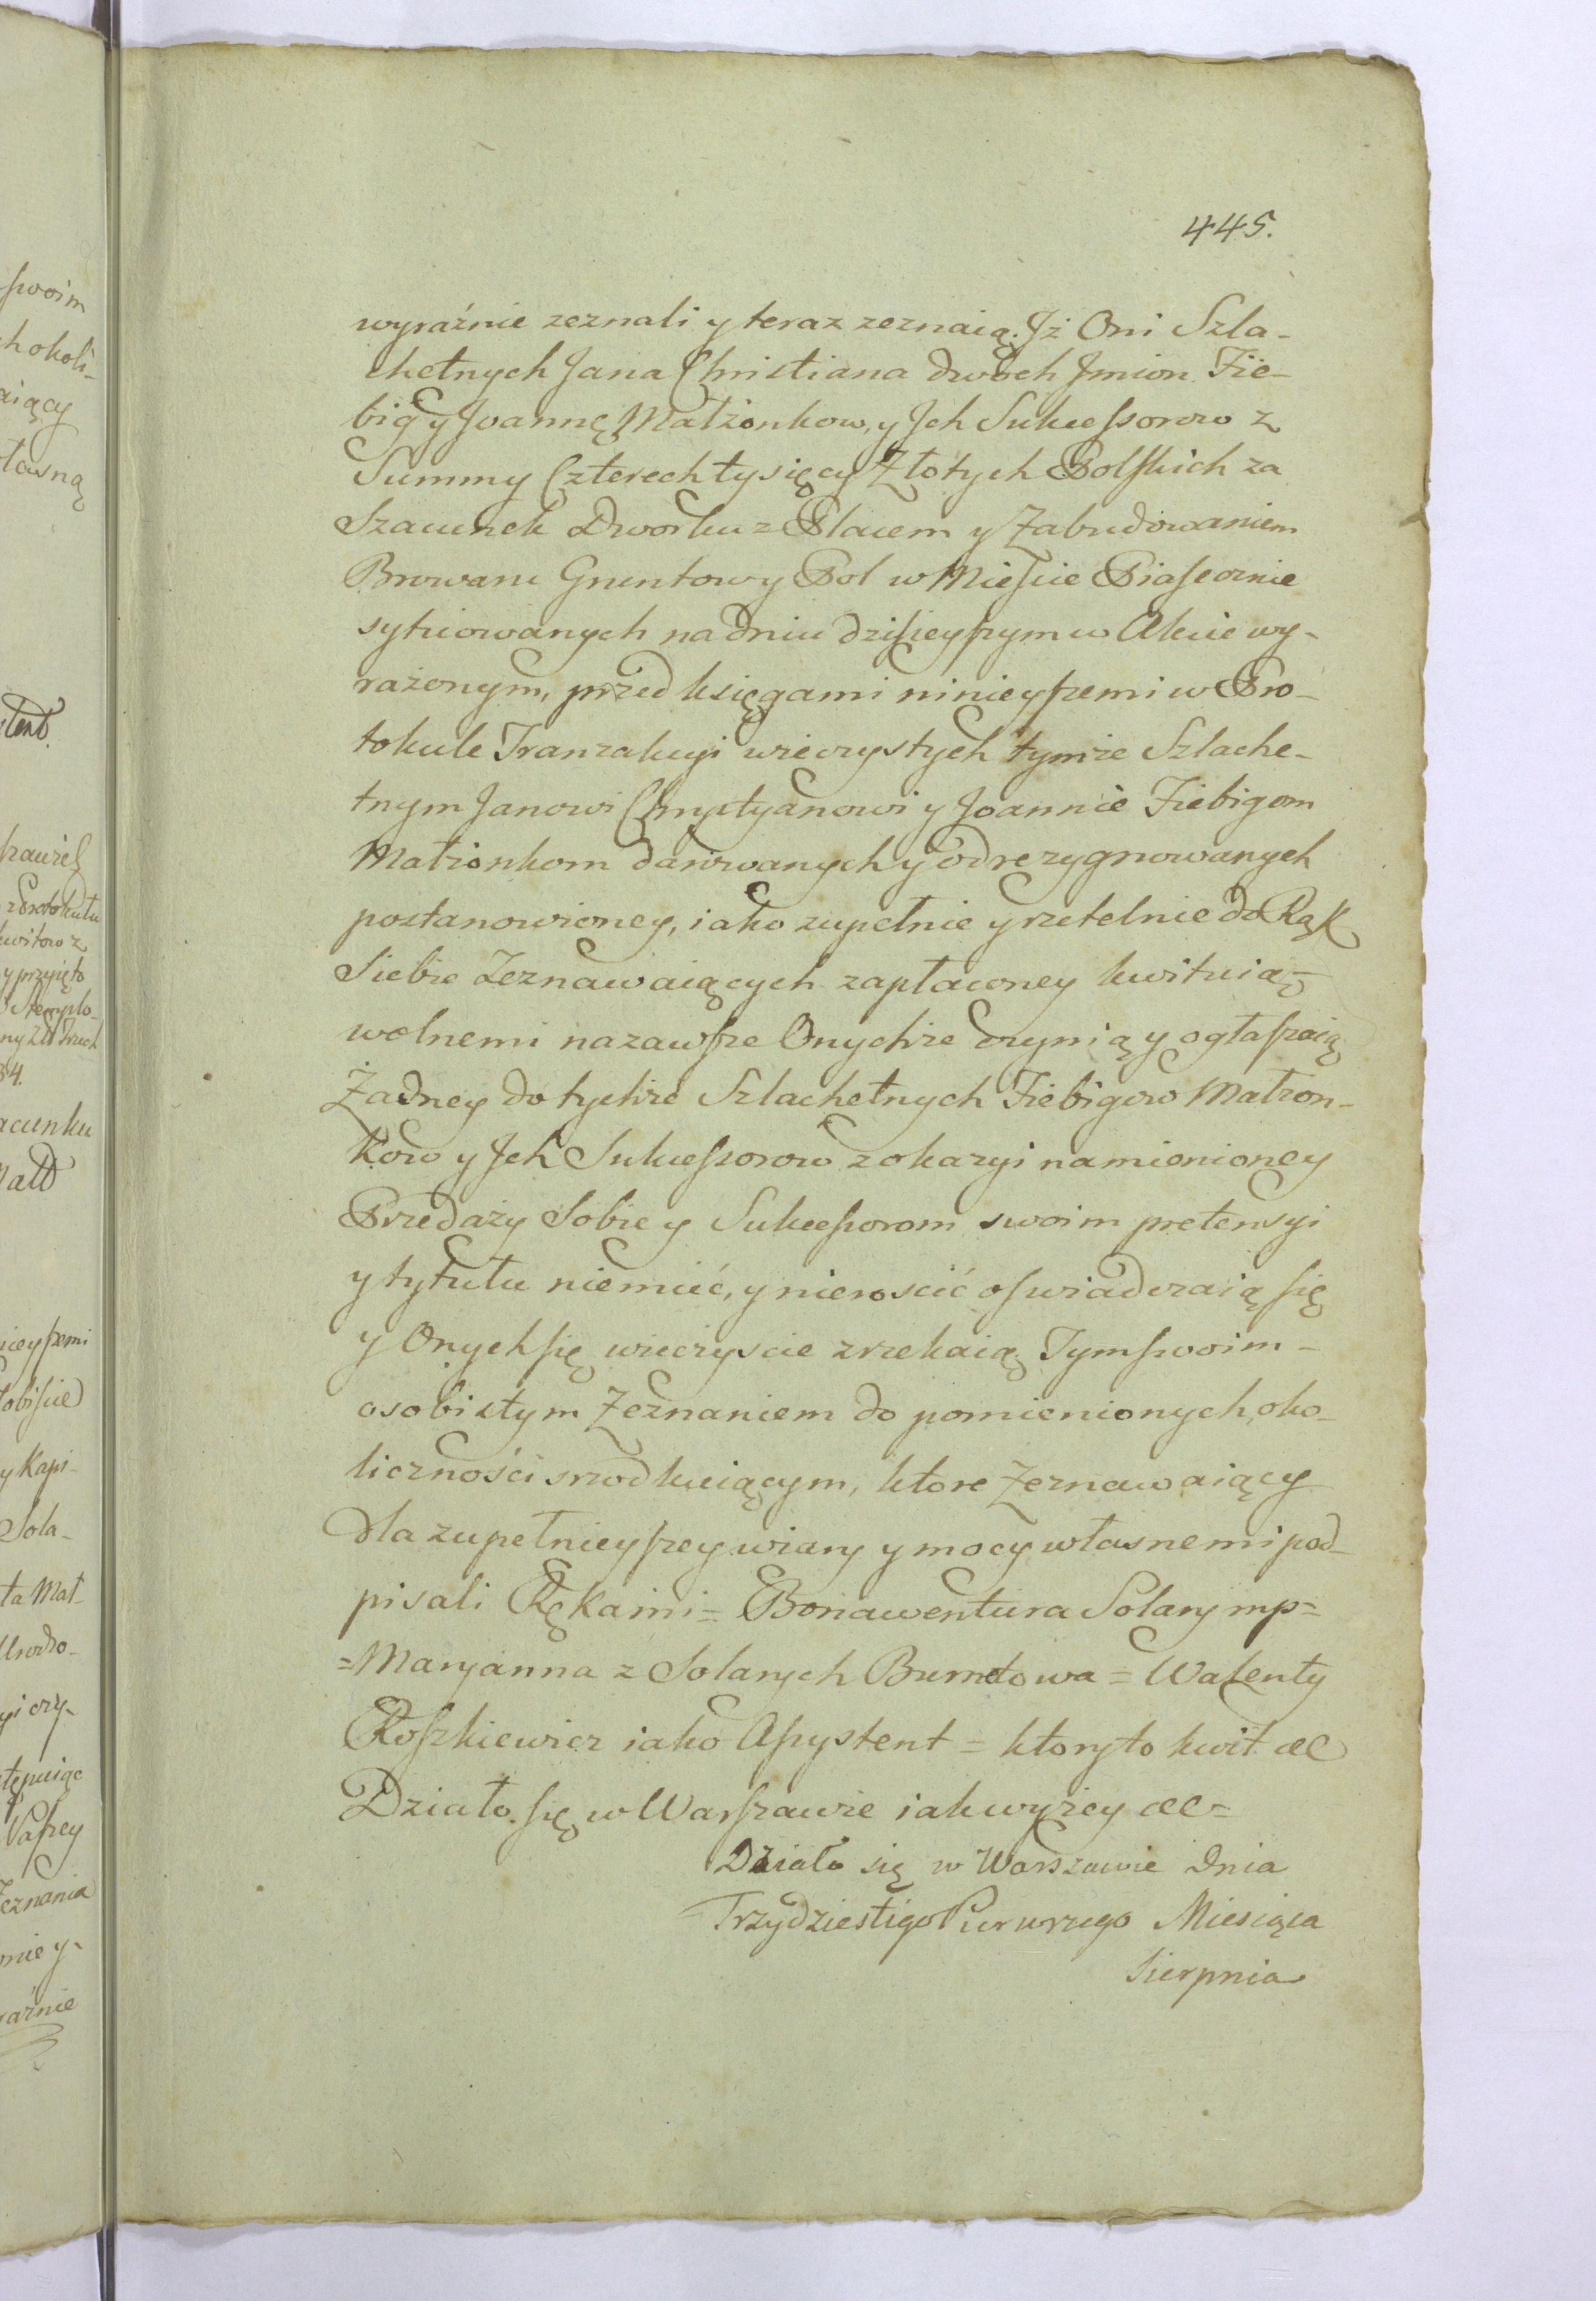 445.
wyraźnie zeznali y teraz zeznaią. Jż Oni Szla-
chetnych Jana Christiana dwóch Jmion Fie-
big y Joannę Małżonkow, y Jch Sukcessorow z
Summy Czterech tysięcy Złotych Polskich za
Szacunek Dworku z Placem y Zabudowaniem
Browaru Gruntow y Pol w Mieście Piasecznie
sytuowanych na dniu dzisieyszym w Akcie wy-
rażonym, przed księgami ninieyszemi w Pro-
tokule Tranzakcyi wieczystych tymże Szlache-
tnym Janowi Chrystyanowi y Joannie Fiebigom
Małżonkom darowanych y odrezygnowanych
postanowioney, iako zupełnie y rzetelnie do Rąk
Siebie Zeznawaiących zapłaconey kwituią-
wolnemi nazawsze Onychże czynią y ogłaszaią
Żadney do tychże Szlachetnych Fiebigow Małżon-
kow y Jch Sukcessorow z okazyi namienioney
Przedaży Sobie y Sukcessorom swoim pretensyi
y tytułu niemieć, y nierościć oswiadczaią się
y Onych się wieczyscie zrzekaią. Tym swoim-
osobistym Zeznaniem do pomienionych oko-
liczności srzodkuiącym, ktore Zeznawaiący
Dla zupełnieyszey wiary y mocy własnemi pod-
pisali Rękami = Bonawentura Solary mp =
= Maryanna z Solarych Burnetowa = Walenty
Roszkiewicz iako Assystent = ktoryto kwit &c
Działo się w Warszawie iak wyżey &c =
Działo się w Warszawie Dnia
Trzydziestego Pierwszego Miesiąca
Sierpnia